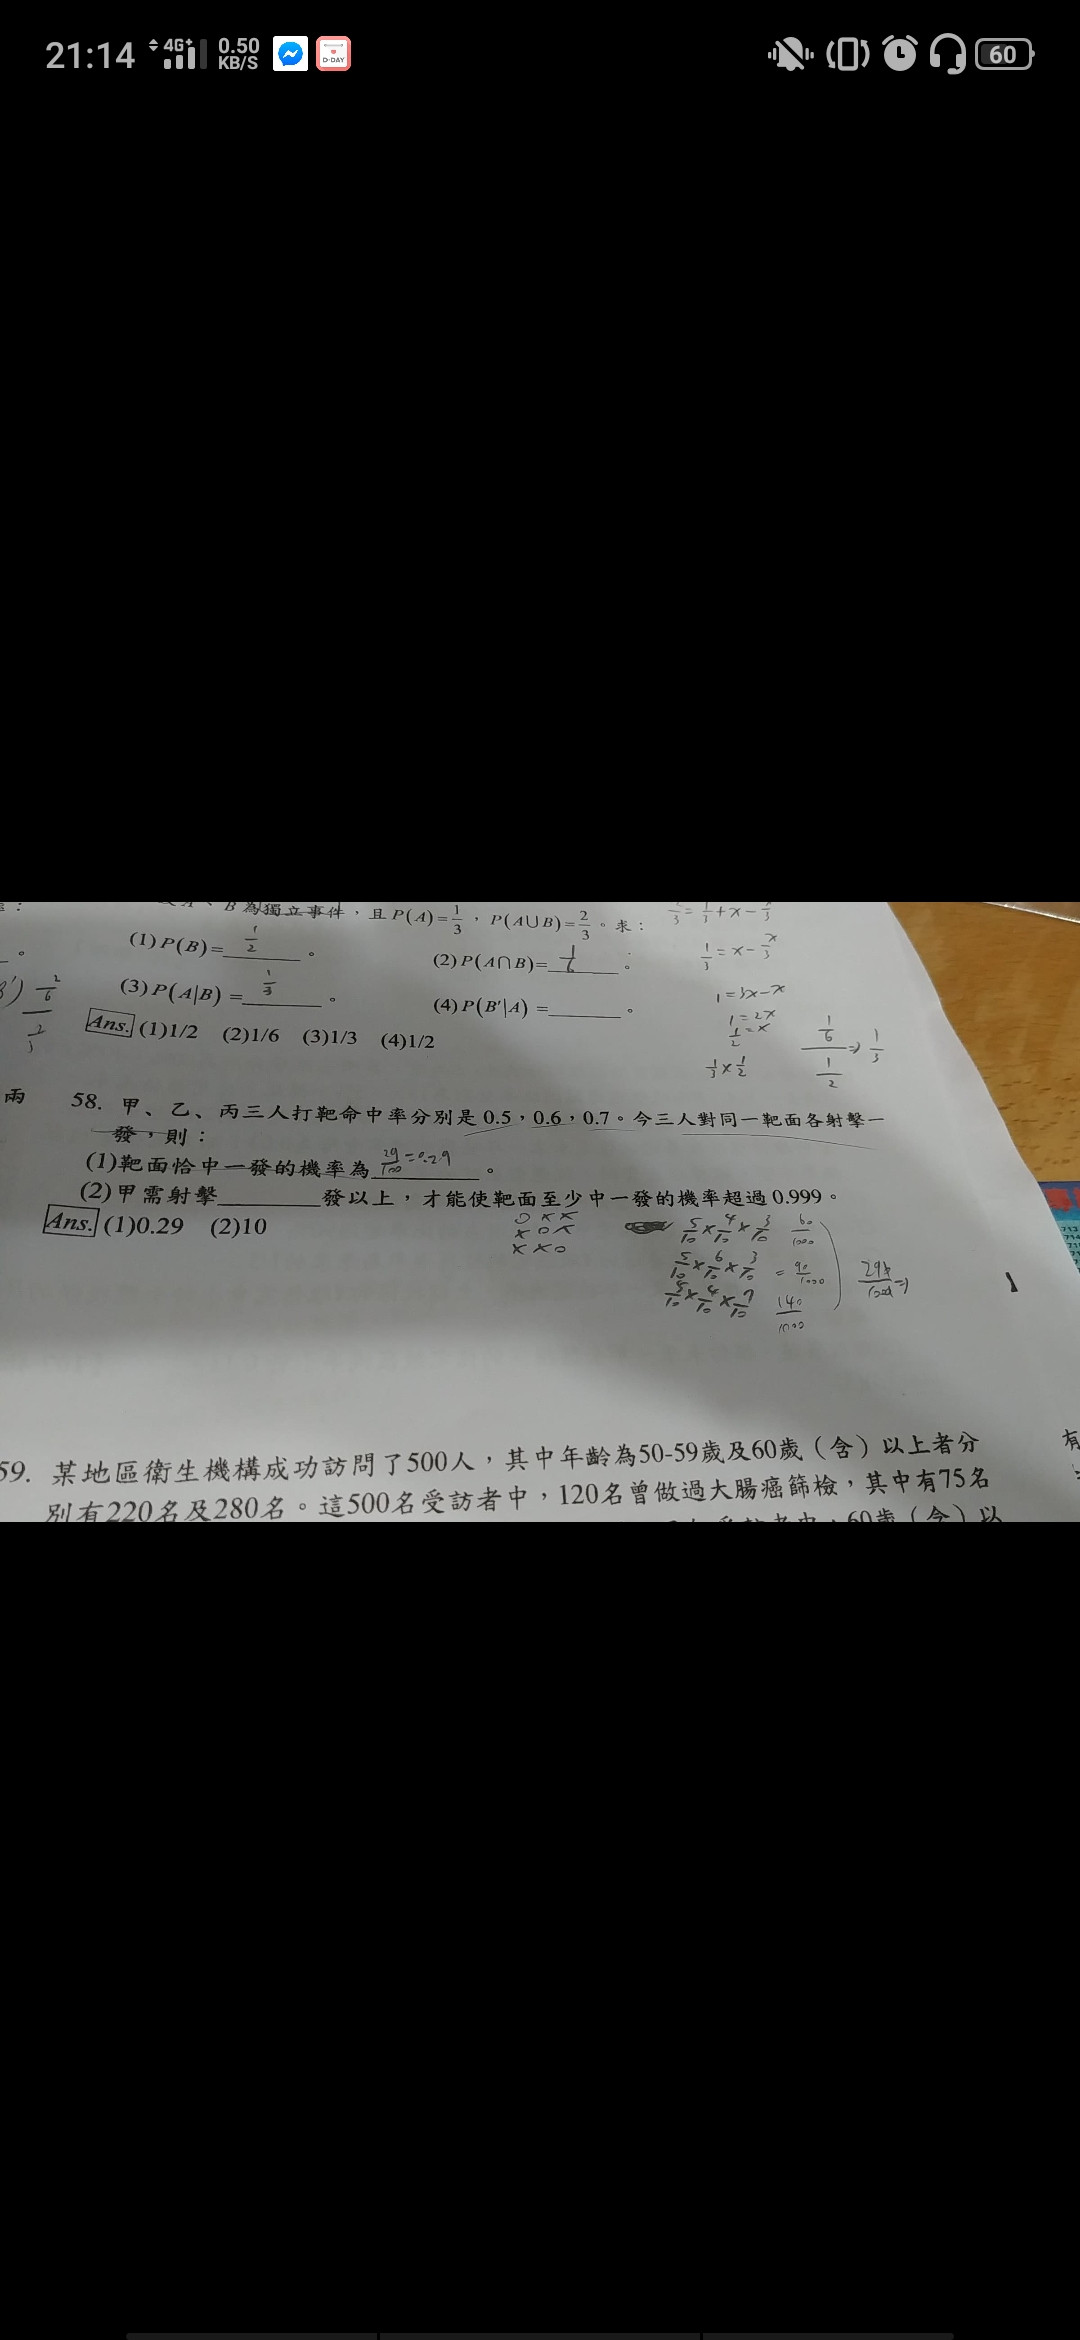 21:14 4G+ 0.50 KB/S D-DAY 60
B 為獨立事件，且 P(A)=1/3，P(A∪B)=2/3。求：
(1) P(B)= 1/2 。 (2) P(A∩B)= 1/6 。
(3) P(A|B) = 1/3 。 (4) P(B'|A) =______。
Ans. (1)1/2 (2)1/6 (3)1/3 (4)1/2
1/3 = x - x/3
1=3x-x
1=2x
1/2=x
1/3 × 1/2
1/6
1/2
⇒ 1/3
兩
58. 甲、乙、丙三人打靶命中率分別是 0.5，0.6，0.7。今三人對同一靶面各射擊一
發，則：
(1)靶面恰中一發的機率為 29/100 =0.29 。
(2)甲需射擊______發以上，才能使靶面至少中一發的機率超過 0.999。
Ans. (1)0.29 (2)10
O X X
X O X
X X O
5/10 × 4/10 × 3/10 60/1000
5/10 × 6/10 × 3/10 = 90/1000
5/10 × 4/10 × 7/10 140/1000
59. 某地區衛生機構成功訪問了500人，其中年齡為50-59歲及60歲（含）以上者分
別有220名及280名。這500名受訪者中，120名曾做過大腸癌篩檢，其中有75名
60歲（含）以
有